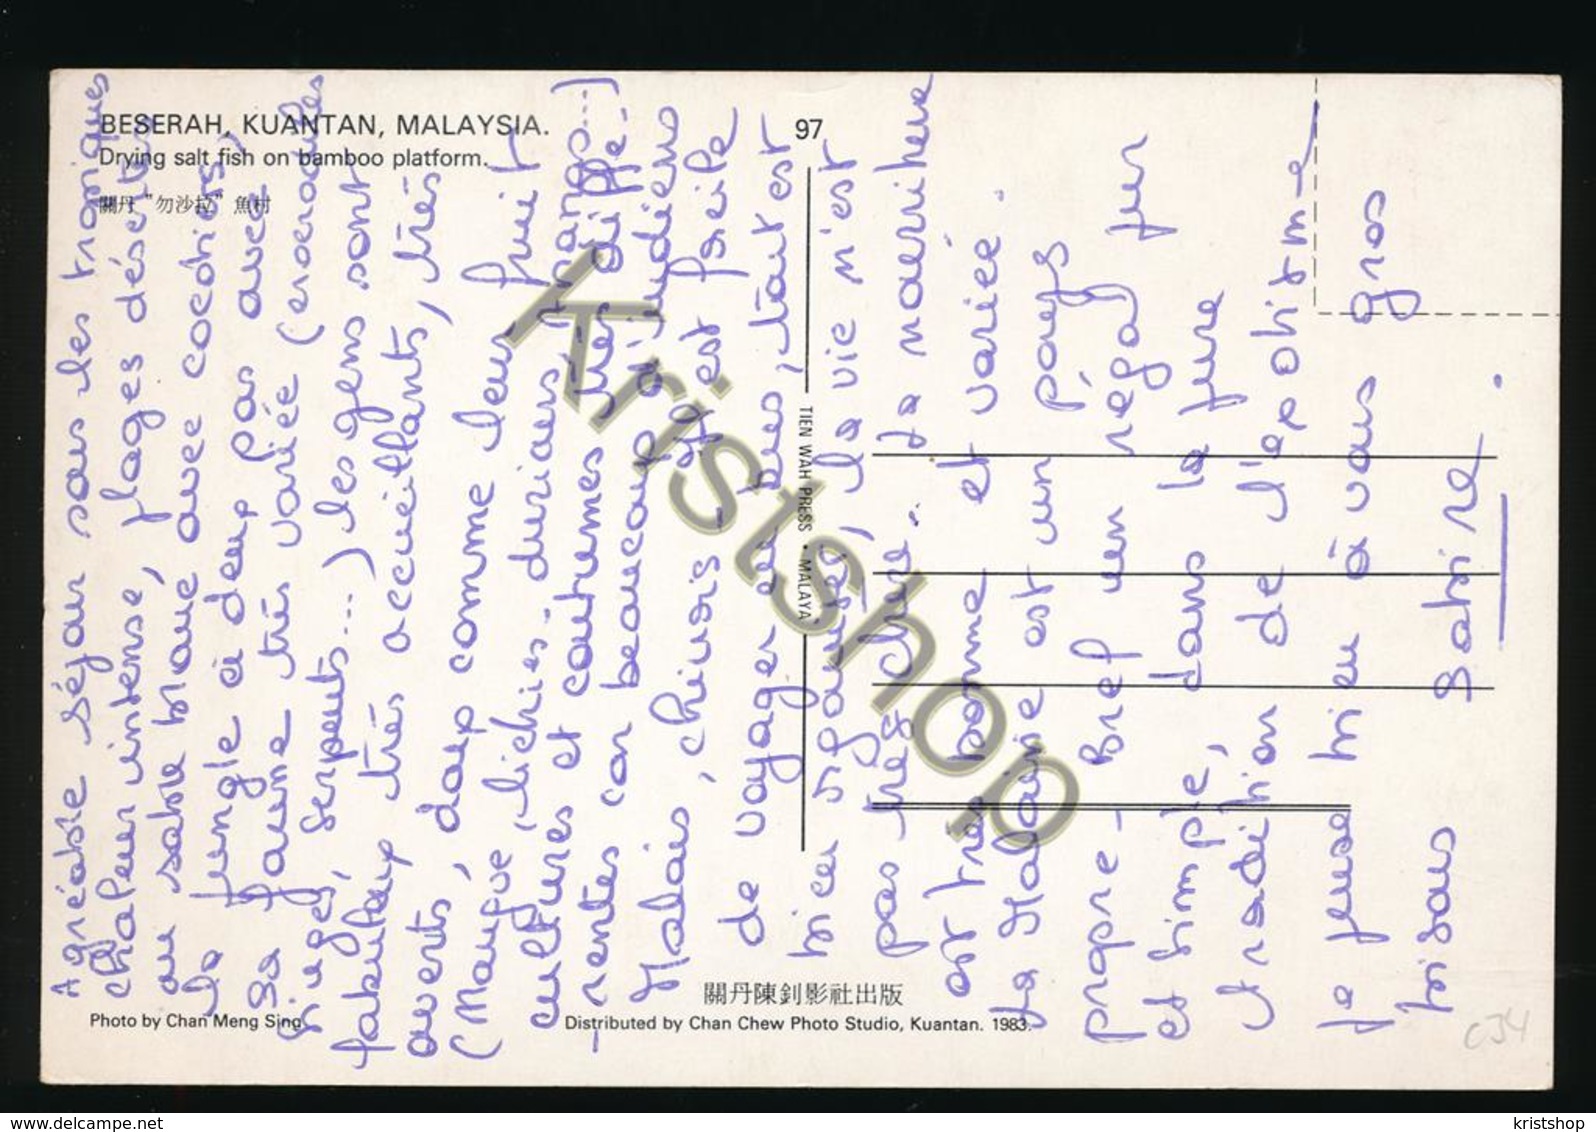 BESERAH, KUANTAN, MALAYSIA.
Drying salt fish on bamboo platform.
關丹 "勿沙拉" 魚村
97
TIEN WAH PRESS • MALAYA
Agréable séjour sous les tropiques
chaleur intense, plages désertes
au sable blanc avec cocotiers,
la jungle à deux pas avec
sa faune très variée (crocodiles
singes, serpents...) les gens sont
fabuleux très accueillants, très
ouverts, doux comme leur fruit
(Mangue, lichies - durians -
cultures et coutumes très diffé-
-rentes car beaucoup d'indiens
Malais, chinois - Il est facile
de voyager en bus, tout est
bien organisé, la vie n'est
pas très chère. La nourriture
est très bonne et variée.
La Malaisie est un pays
propre - bref un régal pur
et simple, dans la jure
tradition de l'epolitme
Je pense bien à vous gros
bisous Sabine
Photo by Chan Meng Sing
關丹陳釗影社出版
Distributed by Chan Chew Photo Studio, Kuantan. 1983.
C34
Kristshop
www.delcampe.net
kristshop